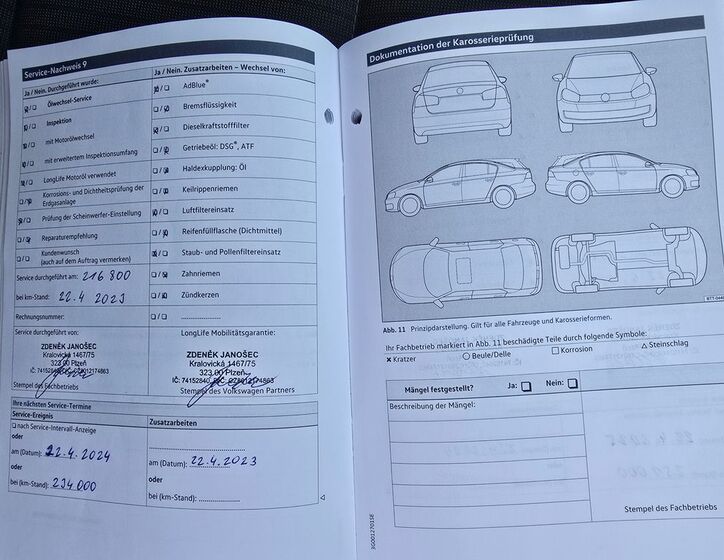 Service-Nachweis 9
Ja / Nein. Durchgeführt wurde:
Ölwechsel-Service
Inspektion
mit Motorölwechsel
mit erweitertem Inspektionsumfang
LongLife Motoröl verwendet
Korrosions- und Dichtheitsprüfung der
Erdgasanlage
Prüfung der Scheinwerfer-Einstellung
Reparaturempfehlung
Kundenwunsch
(auch auf dem Auftrag vermerken)
Service durchgeführt am: 216 800
bei km-Stand: 22.4 2023
Rechnungsnummer:
Service durchgeführt von:
ZDENĚK JANOŠEC
Kralovická 1467/75
323 00 Plzeň
Stempel des Fachbetriebs
Ja / Nein. Zusatzarbeiten – Wechsel von:
AdBlue®
Bremsflüssigkeit
Dieselkraftstofffilter
Getriebeöl: DSG®, ATF
Haldexkupplung: Öl
Keilrippenriemen
Luftfiltereinsatz
Reifenfüllflasche (Dichtmittel)
Staub- und Pollenfiltereinsatz
Zahnriemen
Zündkerzen
LongLife Mobilitätsgarantie:
ZDENĚK JANOŠEC
Kralovická 1467/75
323 00 Plzeň
Stempel des Volkswagen Partners
Ihre nächsten Service-Termine
Service-Ereignis
nach Service-Intervall-Anzeige
oder
am (Datum): 22.4.2024
oder
bei (km-Stand): 234 000
Zusatzarbeiten
am (Datum): 22.4.2023
oder
bei (km-Stand):
Dokumentation der Karosserieprüfung
Abb. 11 Prinzipdarstellung. Gilt für alle Fahrzeuge und Karosserieformen.
Ihr Fachbetrieb markiert in Abb. 11 beschädigte Teile durch folgende Symbole:
× Kratzer ○ Beule/Delle □ Korrosion △ Steinschlag
Mängel festgestellt? Ja: Nein:
Beschreibung der Mängel:
Stempel des Fachbetriebs